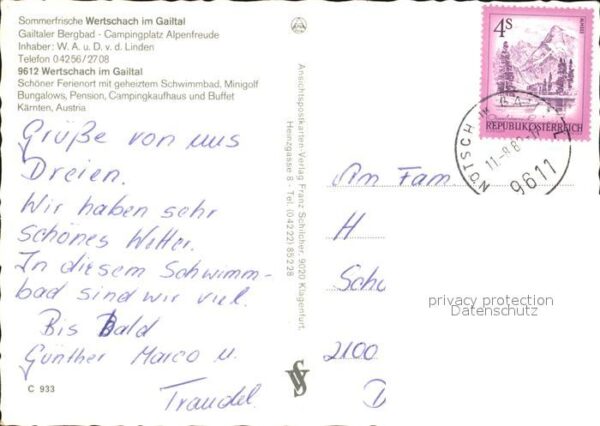 Sommerfrische Wertschach im Gailtal
Gailtaler Bergbad - Campingplatz Alpenfreude
Inhaber: W. A. u. D. v. d. Linden
Telefon 04256/2708
9612 Wertschach im Gailtal
Schöner Ferienort mit geheiztem Schwimmbad, Minigolf
Bungalows, Pension, Campingkaufhaus und Buffet
Kärnten, Austria
Grüße von uns
Dreien.
Wir haben sehr
schönes Wetter.
In diesem Schwimm-
bad sind wir viel.
Bis Bald
Günther Marco u.
Traudel.
C 933
Ansichtspostkarten-Verlag Franz Schilcher, 9020 Klagenfurt,
Heinzgasse 8 - Tel. (0 42 22) 85 2 28
4S
REPUBLIK ÖSTERREICH
NÖTSCH IM GA
9611
An Fam.
H
Schu
privacy protection
Datenschutz
2100
D